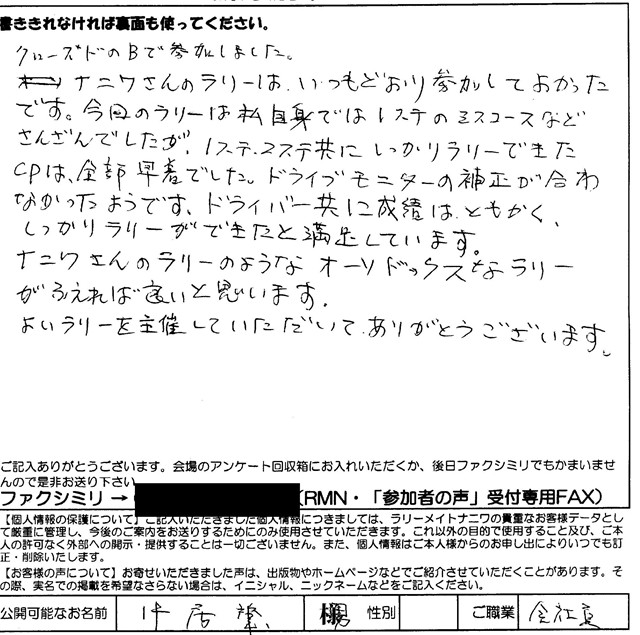 書ききれなければ裏面も使ってください。
クローズドのBで参加しました。
ナニワさんのラリーは、いつもどおり参加してよかった
です。今回のラリーは私自身では1ステのミスコースなど
さんざんでしたが、1ステ.2ステ共にしっかりラリーできた
CPは、全部早着でした。ドライブモニターの補正が合わ
なかったようです、ドライバー共に成績はともかく、
しっかりラリーができたと満足しています。
ナニワさんのラリーのようなオーソドックスなラリー
がふえれば良いと思います。
よいラリーを主催していただいてありがとうございます。
ご記入ありがとうございます。会場のアンケート回収箱にお入れいただくか、後日ファクシミリでもかまいませ
んので是非お送り下さい
ファクシミリ→ (RMN・「参加者の声」受付専用FAX)
【個人情報の保護について】ご記入いただきました個人情報につきましては、ラリーメイトナニワの貴重なお客様データとし
て厳重に管理し、今後のご案内をお送りするためにのみ使用させていただきます。これ以外の目的で使用すること及び、ご本
人の許可なく外部への開示・提供することは一切ございません。また、個人情報はご本人様からのお申し出によりいつでも訂
正・削除いたします。
【お客様の声について】お寄せいただきました声は、出版物やホームページなどでご紹介させていただくことがあります。そ
の際、実名での掲載を希望なさらない場合は、イニシャル、ニックネームなどをご記入ください。
公開可能なお名前 居 様 性別 ご職業 会社員